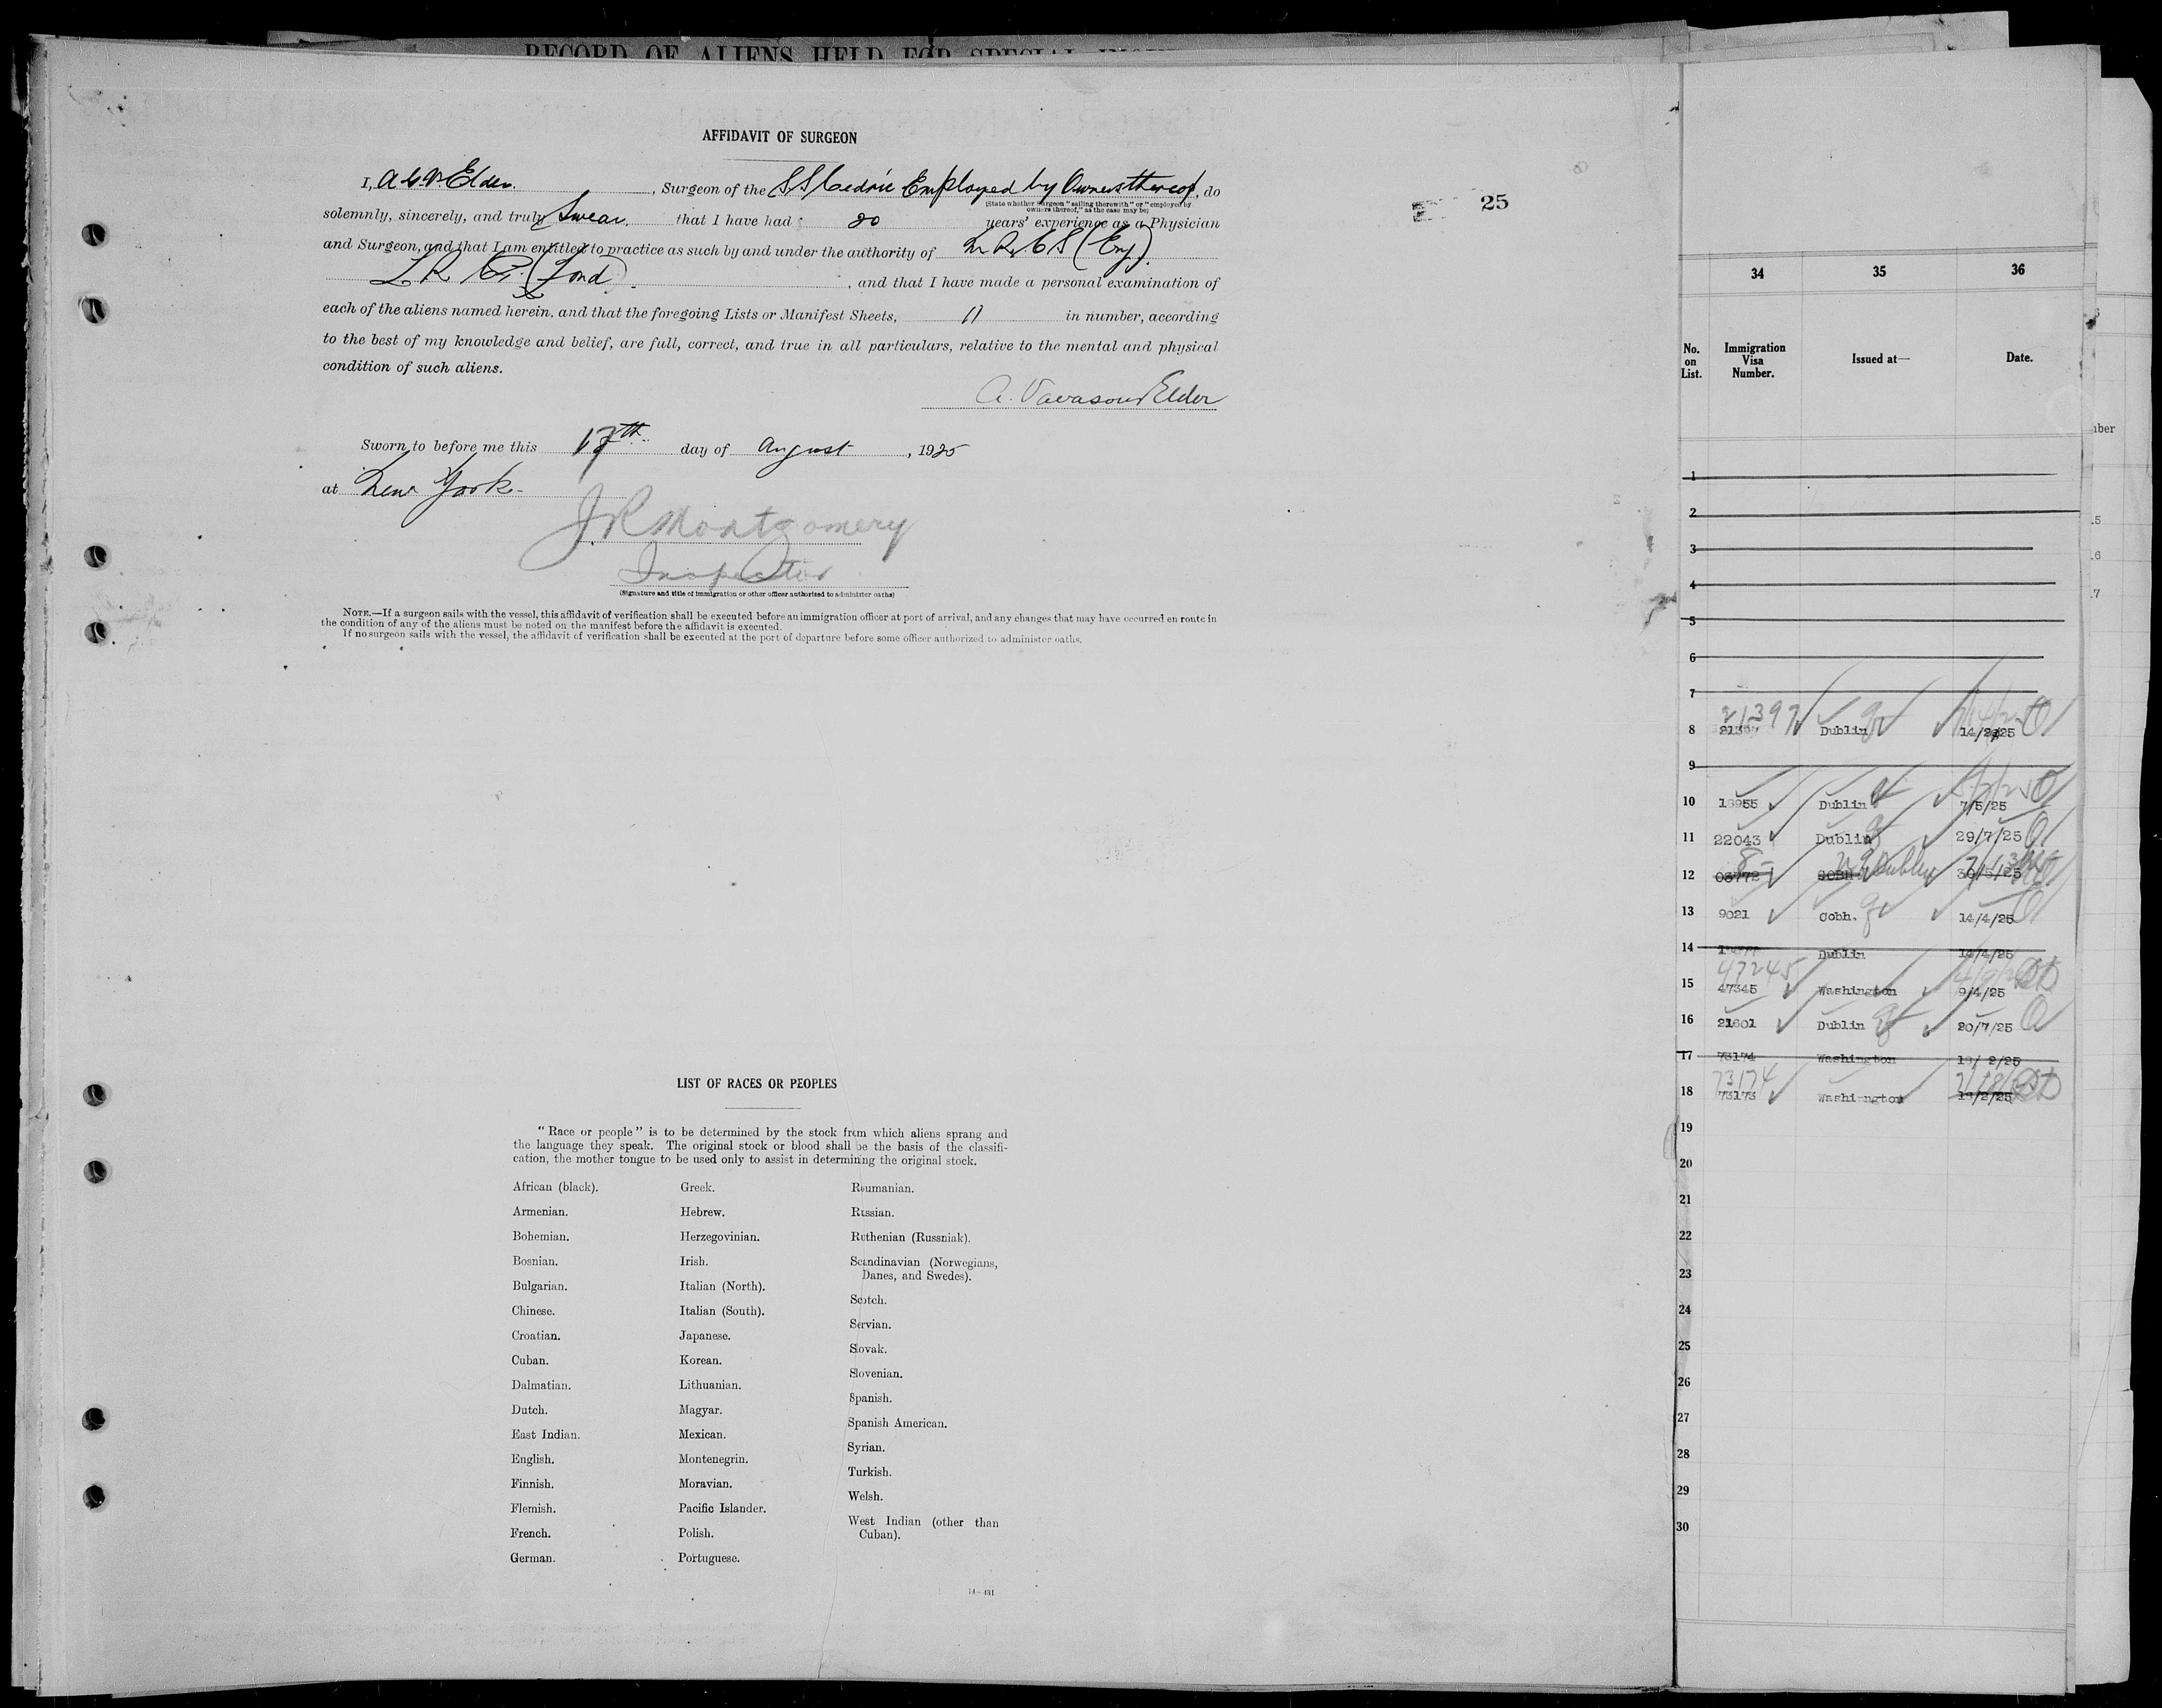 RECORD OF ALIENS HELD FOR SPECIAL
AFFIDAVIT OF SURGEON
I, A. V. Elder. , Surgeon of the SS Cedric Employed by Owners thereof, do
(State whether surgeon "sailing therewith" or "employed by
owners thereof," as the case may be)
solemnly, sincerely, and truly Swear. that I have had 20 years' experience as a Physician
and Surgeon, and that I am entitled to practice as such by and under the authority of M.R.C.S (Eng).
L R C P. (Lond). , and that I have made a personal examination of
each of the aliens named herein, and that the foregoing Lists or Manifest Sheets, 11 in number, according
to the best of my knowledge and belief, are full, correct, and true in all particulars, relative to the mental and physical
condition of such aliens.
A. Vavasour Elder
Sworn to before me this 17th day of August , 1925
at New York
J R Montgomery
Inspector
(Signature and title of immigration or other officer authorized to administer oaths)
NOTE.—If a surgeon sails with the vessel, this affidavit of verification shall be executed before an immigration officer at port of arrival, and any changes that may have occurred en route in
the condition of any of the aliens must be noted on the manifest before the affidavit is executed.
If no surgeon sails with the vessel, the affidavit of verification shall be executed at the port of departure before some officer authorized to administer oaths.
LIST OF RACES OR PEOPLES
"Race or people" is to be determined by the stock from which aliens sprang and
the language they speak. The original stock or blood shall be the basis of the classifi-
cation, the mother tongue to be used only to assist in determining the original stock.
African (black).
Armenian.
Bohemian.
Bosnian.
Bulgarian.
Chinese.
Croatian.
Cuban.
Dalmatian.
Dutch.
East Indian.
English.
Finnish.
Flemish.
French.
German.
Greek.
Hebrew.
Herzegovinian.
Irish.
Italian (North).
Italian (South).
Japanese.
Korean.
Lithuanian.
Magyar.
Mexican.
Montenegrin.
Moravian.
Pacific Islander.
Polish.
Portuguese.
Roumanian.
Russian.
Ruthenian (Russniak).
Scandinavian (Norwegians,
Danes, and Swedes).
Scotch.
Servian.
Slovak.
Slovenian.
Spanish.
Spanish American.
Syrian.
Turkish.
Welsh.
West Indian (other than
Cuban).
14—431
25
34 35 36
No. on List. Immigration Visa Number. Issued at— Date.
1
2
3
4
5
6
7
21397
8 21397 Dublin 14/2/25
9
10 13955 Dublin 7/5/25
11 22043 Dublin 29/7/25
12 03772 COBH Dublin 30/5/25
13 9021 Cobh. 14/4/25
14 Dublin 14/4/25
47245
15 47345 Washington 9/4/25
16 21601 Dublin 20/7/25
17 73174 Washington 13/2/25
73174
18 73173 Washington 13/2/25
19
20
21
22
23
24
25
26
27
28
29
30